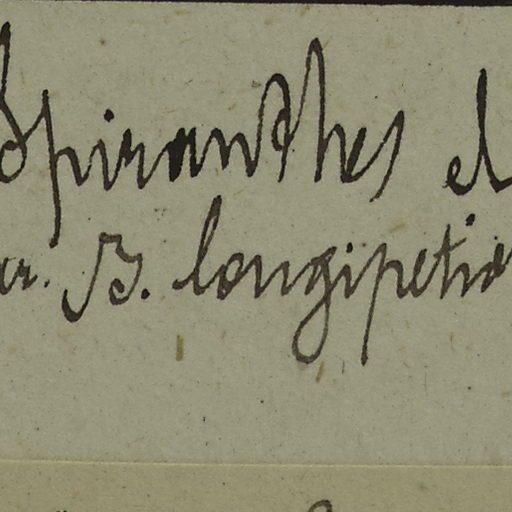 Spiranthes el
ar. B. longipetio